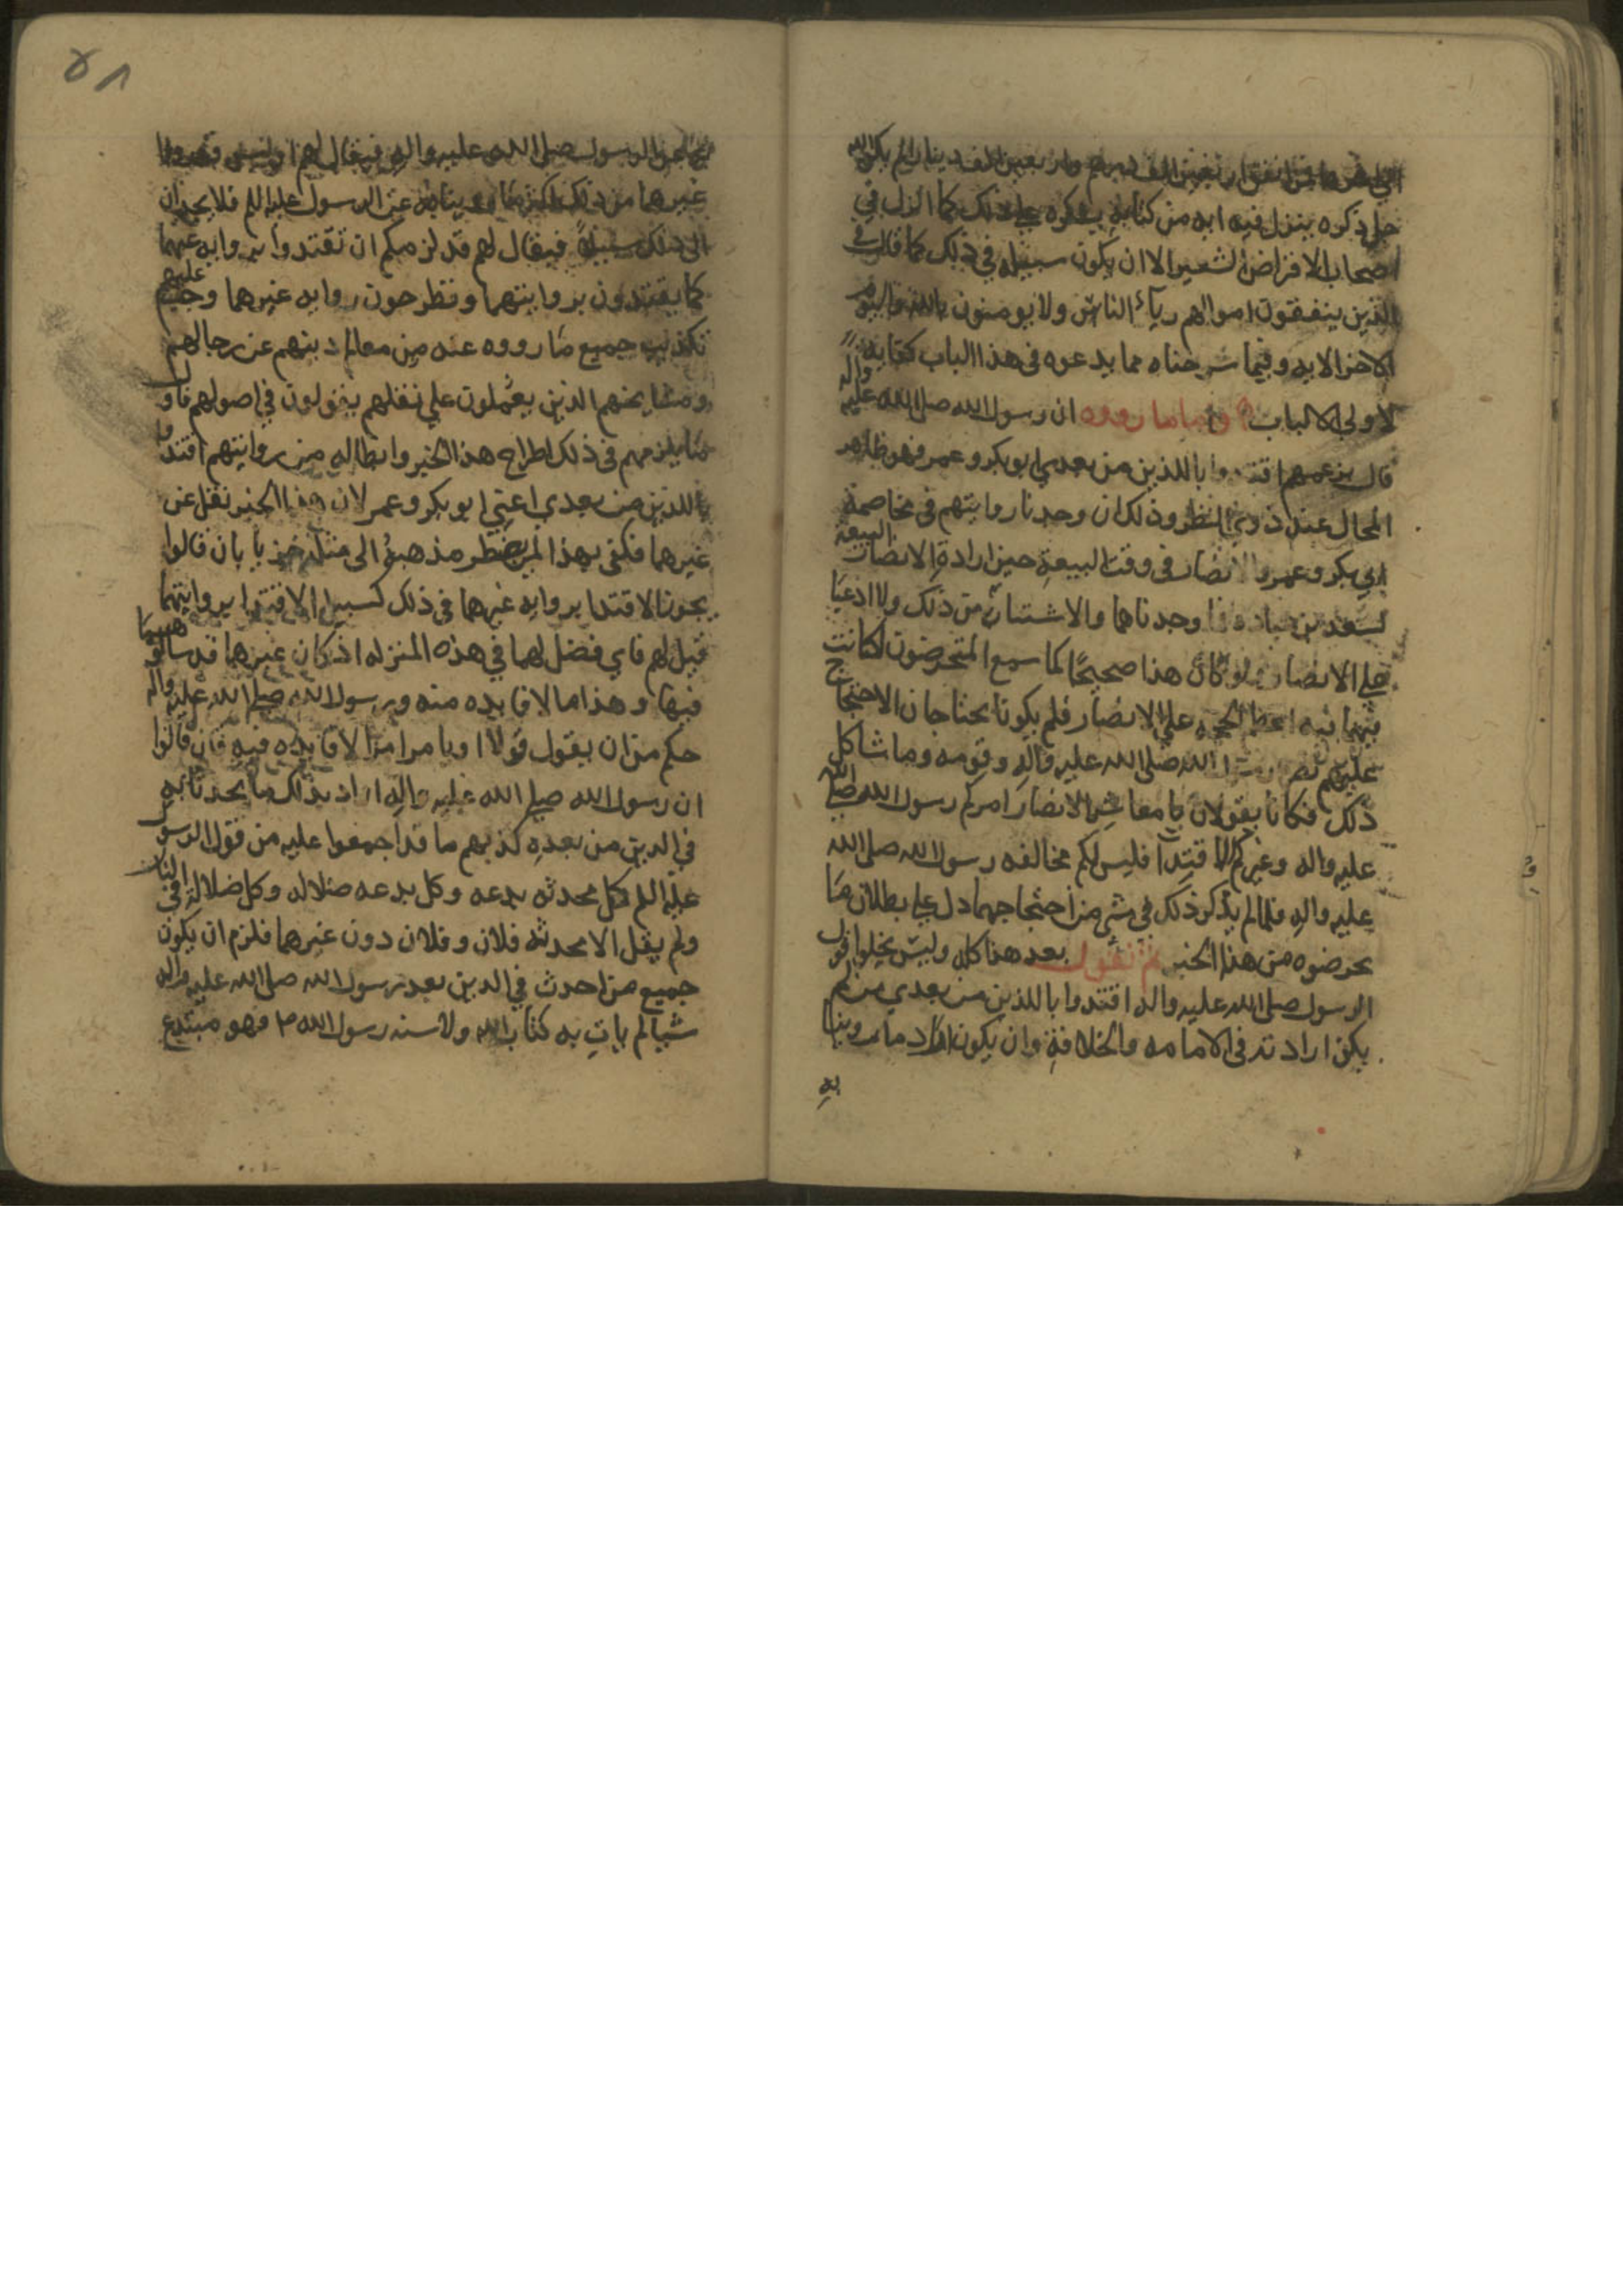 انفق اربعين الف درهم واربعين الف دينار لم يكن الله
جل ذكره ينزل فيه ايه من كتابه يذكره على ذلك كما انزل في
اصحاب الاقراص الشعير الا ان يكون سبيله في ذلك كما قال في
الذين ينفقون اموالهم رياء الناس ولا يومنون بالله واليوم
الاخر الايه وفيما شرحناه مما يدعوه في هذا الباب كفايه
لاولي الالباب واما ما رووه ان رسول الله صلى الله عليه واله
قال بزعمهم اقتدوا باللذين من بعدي ابو بكر وعمر فهو ظاهر
المحال عند ذوي النظر وذلك ان وجدنا روايتهم في مخاصمة
ابي بكر وعمر والانصار في وقت البيعة حين ارادة الانصار البيعة
لسعد بن عباده فما وجدناهما والاشتبان من ذلك ولا ادعيا
على الانصار ولو كان هذا صحيحا كما سمع المتخرصون لكانت
بينهما فيه اعظم الحجه على الانصار فلم يكونا يحتاجان الاحتجاج
عليهم رسول الله صلى الله عليه واله وقومه وما شاكل
ذلك فكانا يقولان يا معاشر الانصار امركم رسول الله صلى الله
عليه واله وغيركم الاقتدا فليس لكم مخالفه رسول الله صلى الله
عليه واله فلما لم يذكر ذلك في شي من احتجاجهما دل على بطلان ما
يخرصوه من هذا الخبر ثم نقول بعد هذا كله وليس يخلوا قول
الرسول صلى الله عليه واله اقتدوا باللذين من بعدي من ان
يكن ارادته في الامامه والخلافة وان يكون اراد ما يرويانها
به
عن الرسول صلى الله عليه واله فيقال لهم اوليس قد روا
غيرهما من ذلك اكثر مما رويناه عن الرسول عليه السلم فلا يجدون
الى ذلك سبيلا فيقال لهم قد لزمكم ان تقتدوا بروايه عنهما
كما يقتدون بروايتهما وتطرحون روايه غيرهما وجب عليهم
تكذيب جميع ما رووه عنه من معالم دينهم عن رجالهم
ومشايخهم الذين يعملون على نقلهم يتولون في اصولهم فاول
ما يلزمهم في ذلك اطراح هذا الخبر وابطاله من روايتهم اقتدوا
باللذين من بعدي اعني ابو بكر وعمر لان هذا الخبر نقل عن
غيرهما فكفى بهذا لمن يضطر مذهبه الى مثله خزيا بان قالوا
يجوز الاقتدا بروايه غيرهما في ذلك كسبيل الاقتدا بروايتهما
قيل لهم فاي فضل لهما في هذه المنزله اذ كان غيرهما قد ساواهما
فيها وهذا ما لا فايده منه ورسول الله صلى الله عليه واله
حكم من ان يقول قولا او يامر امرا لا فايده فيه فان قالوا
ان رسول الله صلى الله عليه واله اراد بذلك ما يحدثا به
في الدين من بعده كذبهم ما قد اجمعوا عليه من قول الرسول
عليه السلم كل محدثه بدعه وكل بدعه ضلاله وكل ضلاله في النار
ولم يقل الا محدثه فلان وفلان دون غيرهما فلزم ان يكون
جميع من احدث في الدين بعد رسول الله صلى الله عليه واله
شيا لم يات به كتاب الله ولا سنه رسول الله ص فهو مبتدع